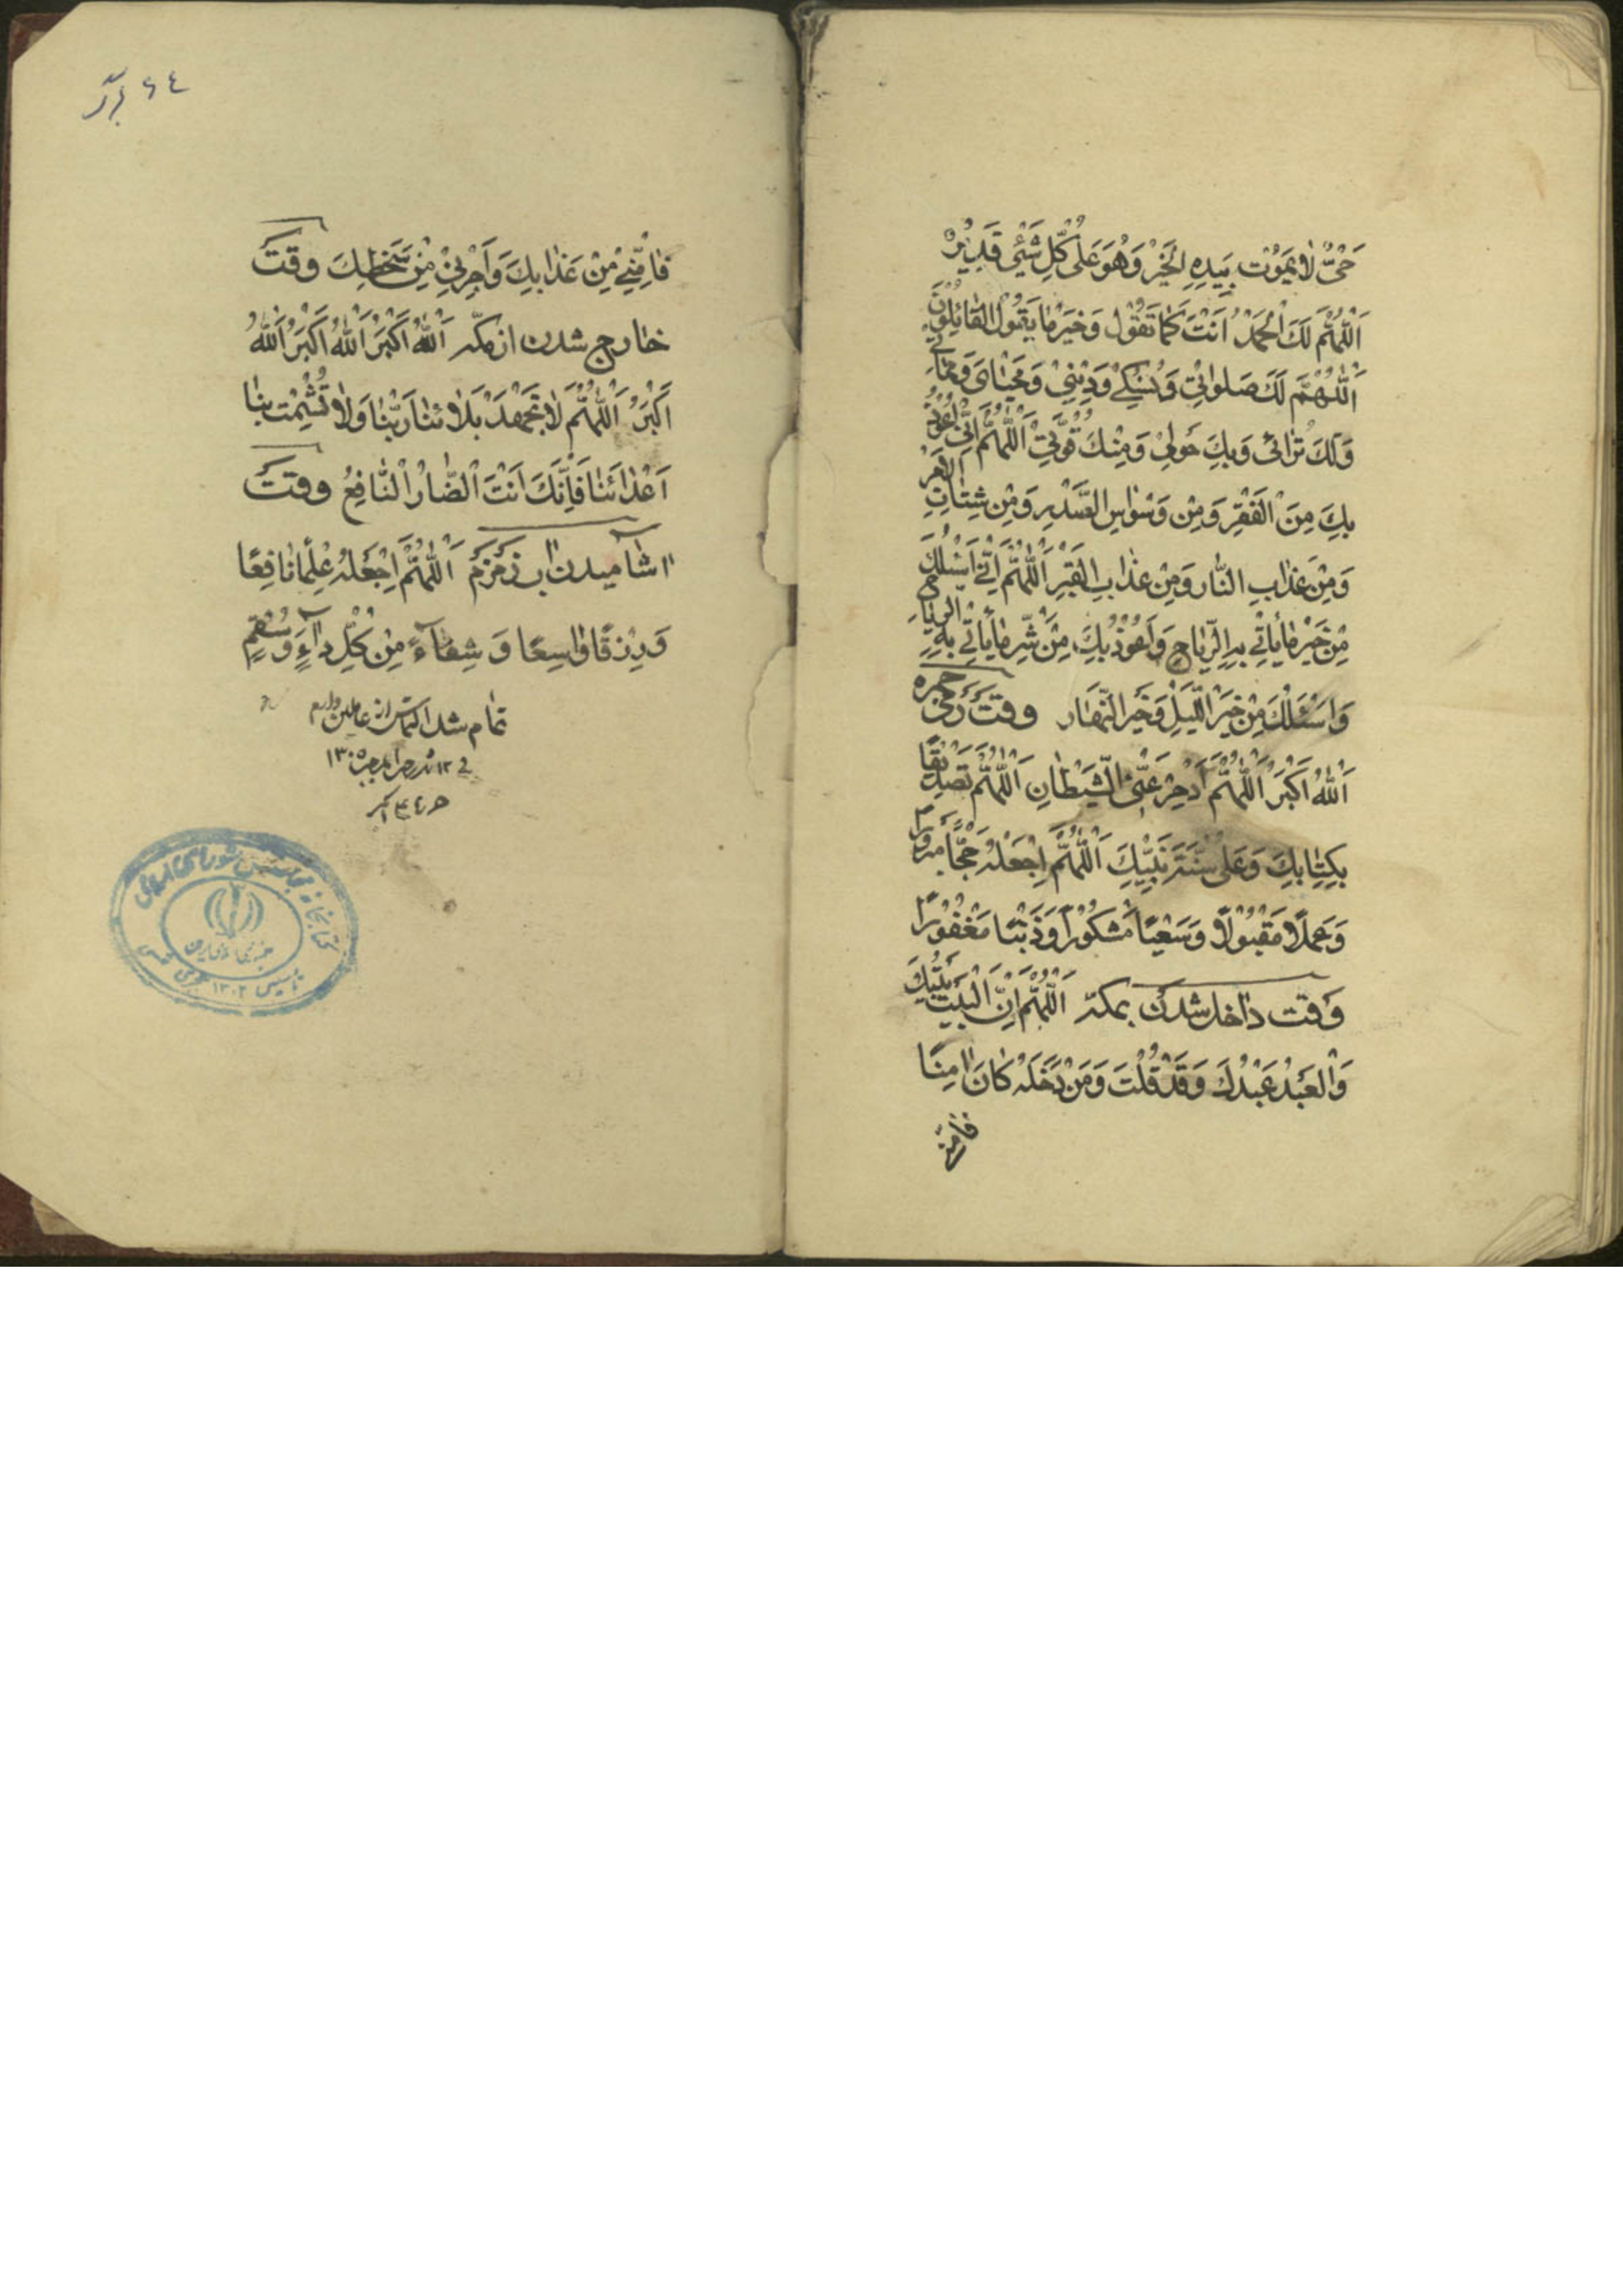 حَیٌّ لٰا یَمُوْتُ بِیَدِهِ الْخَیْرُ وَهُوَ عَلٰی كُلِّ شَیْئٍ قَدِیْرٌ
اَللّٰهُمَّ لَكَ الْحَمْدُ اَنْتَ كَمٰا تَقُوْلُ وَخَیْرَ مٰا یَقُوْلُ الْقٰائِلُوْنَ
اَللّٰهُمَّ لَكَ صَلَوٰاتِیْ وَنُسُكِیْ وَدِیْنِیْ وَمَحْیٰایَ وَمَمٰاتِیْ
وَلَكَ تُرٰاثِی وَبِكَ حَوْلِیْ وَمِنْكَ قُوَّتِیْ اَللّٰهُمَّ اِنِّیْ اَعُوْذُ
بِكَ مِنَ الْفَقْرِ وَمِنْ وَسْوٰاسِ الصَّدْرِ وَمِنْ شِتٰاتِ الْاَمْرِ
وَمِنْ عَذٰابِ النّٰارِ وَمِنْ عَذٰابِ الْقَبْرِ اَللّٰهُمَّ اِنِّیْ اَسْئَلُكَ
مِنْ خَیْرِ مٰا یَأْتِیْ بِهِ الرِّیٰاحُ وَاَعُوْذُ بِكَ مِنْ شَرِّ مٰا یَأْتِیْ بِهِ الرِّیٰاحُ
وَاَسْئَلُكَ مِنْ خَیْرِ اللَّیْلِ وَخَیْرِ النَّهٰارِ وقتَ رَمْی جمره
اَللّٰهُ اَكْبَرُ اَللّٰهُمَّ اَدْحِرْ عَنِّی الشَّیْطٰانِ اَللّٰهُمَّ تَصْدِیْقًا
بِكِتٰابِكَ وَعَلٰی سُنَّةِ نَبِیِّكَ اَللّٰهُمَّ اجْعَلْهُ حَجًّا مَبْرُوْرًا
وَعَمَلًا مَقْبُوْلًا وَسَعْیًا مَشْكُوْرًا وَذَنْبًا مَغْفُوْرًا
وَقت دٰاخل شدن بمكّه اَللّٰهُمَّ اِنَّ الْبَیْتَ بَیْتُكَ
وَالْعَبْدُ عَبْدُكَ وَقَدْ قُلْتَ وَمَنْ دَخَلَهُ كٰانَ اٰمِنًا
فَاٰمِنّی
فَاٰمِنِّیْ مِنْ عَذٰابِكَ وَاَجِرْنِیْ مِنْ سَخَطِكَ وقتَ
خٰارج شدن از مكّه اَللّٰهُ اَكْبَرُ اَللّٰهُ اَكْبَرُ اَللّٰهُ
اَكْبَرُ اَللّٰهُمَّ لٰا تَجْهَدْ بَلٰائَنٰا رَبَّنٰا وَلٰا تُشْمِتْ بِنٰا
اَعْدٰائَنٰا فَاِنَّكَ اَنْتَ الضّٰارُّ النّٰافِعُ وقتَ
اشٰامیدن اب زمزم اَللّٰهُمَّ اجْعَلْهُ عِلْمًا نٰافِعًا
وَرِزْقًا وٰاسِعًا وَ شِفٰآءً مِنْ كُلِّ دٰآءٍ وَسُقْمٍ
تمام شد التماس از عاملین دارم
فی ١٢ ١٣٠٥
كتابخانه مجلس شورای اسلامی
جمهوری اسلامی ایران
تأسیس ١٣٠٢